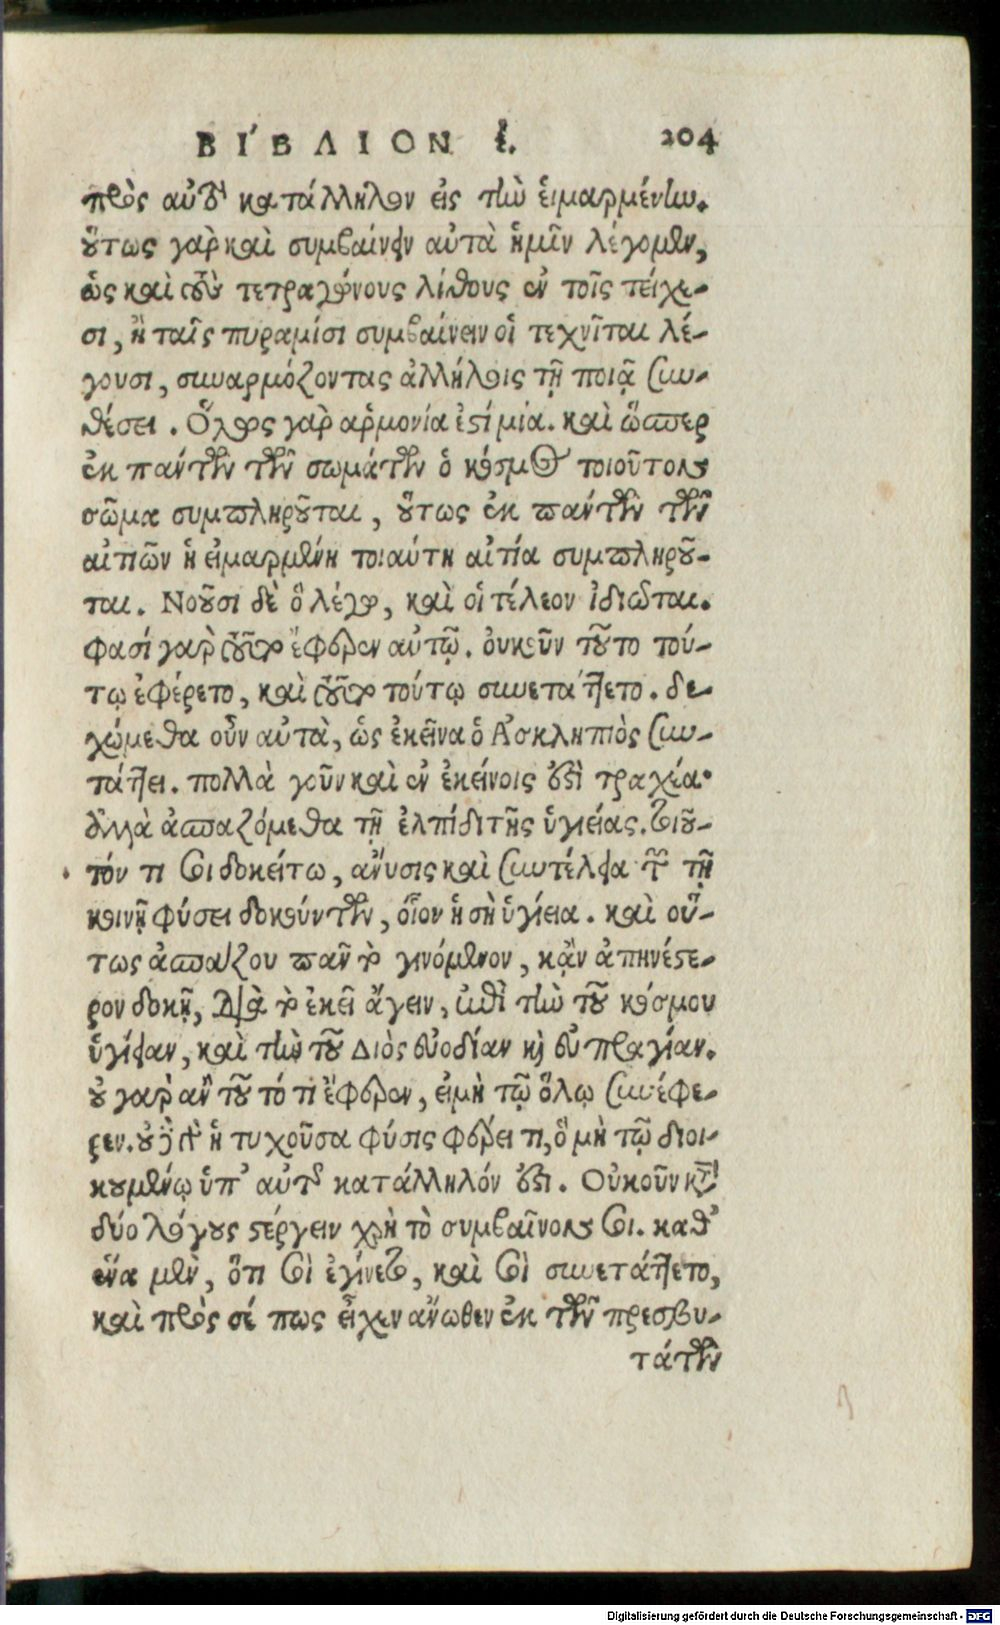 ΒΙ´ΒΛΙΟΝ ε. 204
πρὸς αὐτὸν κατάλληλον εἰς τὴν εἱμαρμένην.
οὕτως γὰρ καὶ συμβαίνειν αὐτὰ ἡμῖν λέγομεν,
ὡς καὶ τοὺς τετραγώνους λίθους ἐν τοῖς τείχε-
σι, ἢ ταῖς πυραμίσι συμβαίνειν οἱ τεχνῖται λέ-
γουσι, συναρμόζοντας ἀλλήλοις τῇ ποιᾷ συν-
θέσει. Ὅλως γὰρ ἁρμονία ἐστί μία. καὶ ὥσπερ
ἐκ πάντων τῶν σωμάτων ὁ κόσμος τοιοῦτον
σῶμα συμπληροῦται, οὕτως ἐκ πάντων τῶν
αἰτιῶν ἡ εἱμαρμένη τοιαύτη αἰτία συμπληροῦ-
ται. Νοοῦσι δὲ ὃ λέγω, καὶ οἱ τέλεον ἰδιῶται.
φασί γὰρ τοῦτο ἔφερεν αὐτῷ. οὐκοῦν τοῦτο τού-
τῳ ἐφέρετο, καὶ τοῦτο τούτῳ συνετάττετο. δε-
χώμεθα οὖν αὐτὰ, ὡς ἐκεῖνα ὁ Ἀσκληπιὸς συν-
τάττει. πολλὰ γοῦν καὶ ἐν ἐκείνοις ἐστὶ τραχέα·
ἀλλὰ ἀσπαζόμεθα τῇ ἐλπίδι τῆς ὑγιείας. τοιοῦ-
τόν τι σοι δοκείτω, ἄνυσις καὶ συντέλεια τῶν τῇ
κοινῇ φύσει δοκούντων, οἷον ἡ σὴ ὑγίεια. καὶ οὕ-
τως ἀσπάζου πᾶν τὸ γινόμενον, κἂν ἀπηνέστε-
ρον δοκῇ, διὰ τὸ ἐκεῖ ἄγειν, ἐπὶ τὴν τοῦ κόσμου
ὑγίειαν, καὶ τὴν τοῦ Διὸς εὐοδίαν κὶ εὐπραγίαν.
οὐ γὰρ ἂν τοῦτό τι ἔφερεν, εἰ μὴ τῷ ὅλῳ συνέφε-
ρεν. οὐδὲ γὰρ ἡ τυχοῦσα φύσις φέρει τι, ὃ μὴ τῷ διοι-
κουμένῳ ὑπ' αὐτῆς κατάλληλόν ἐστι. Οὐκοῦν κατὰ
δύο λόγους στέργειν χρὴ τὸ συμβαῖνόν σοι. καθ'
ἕνα μὲν, ὅτι σοὶ ἐγίνετο, καὶ σοὶ συνετάττετο,
καὶ πρὸς σέ πως εἶχεν ἄνωθεν ἐκ τῶν πρεσβυ-
τάτων
Digitalisierung gefördert durch die Deutsche Forschungsgemeinschaft - DFG